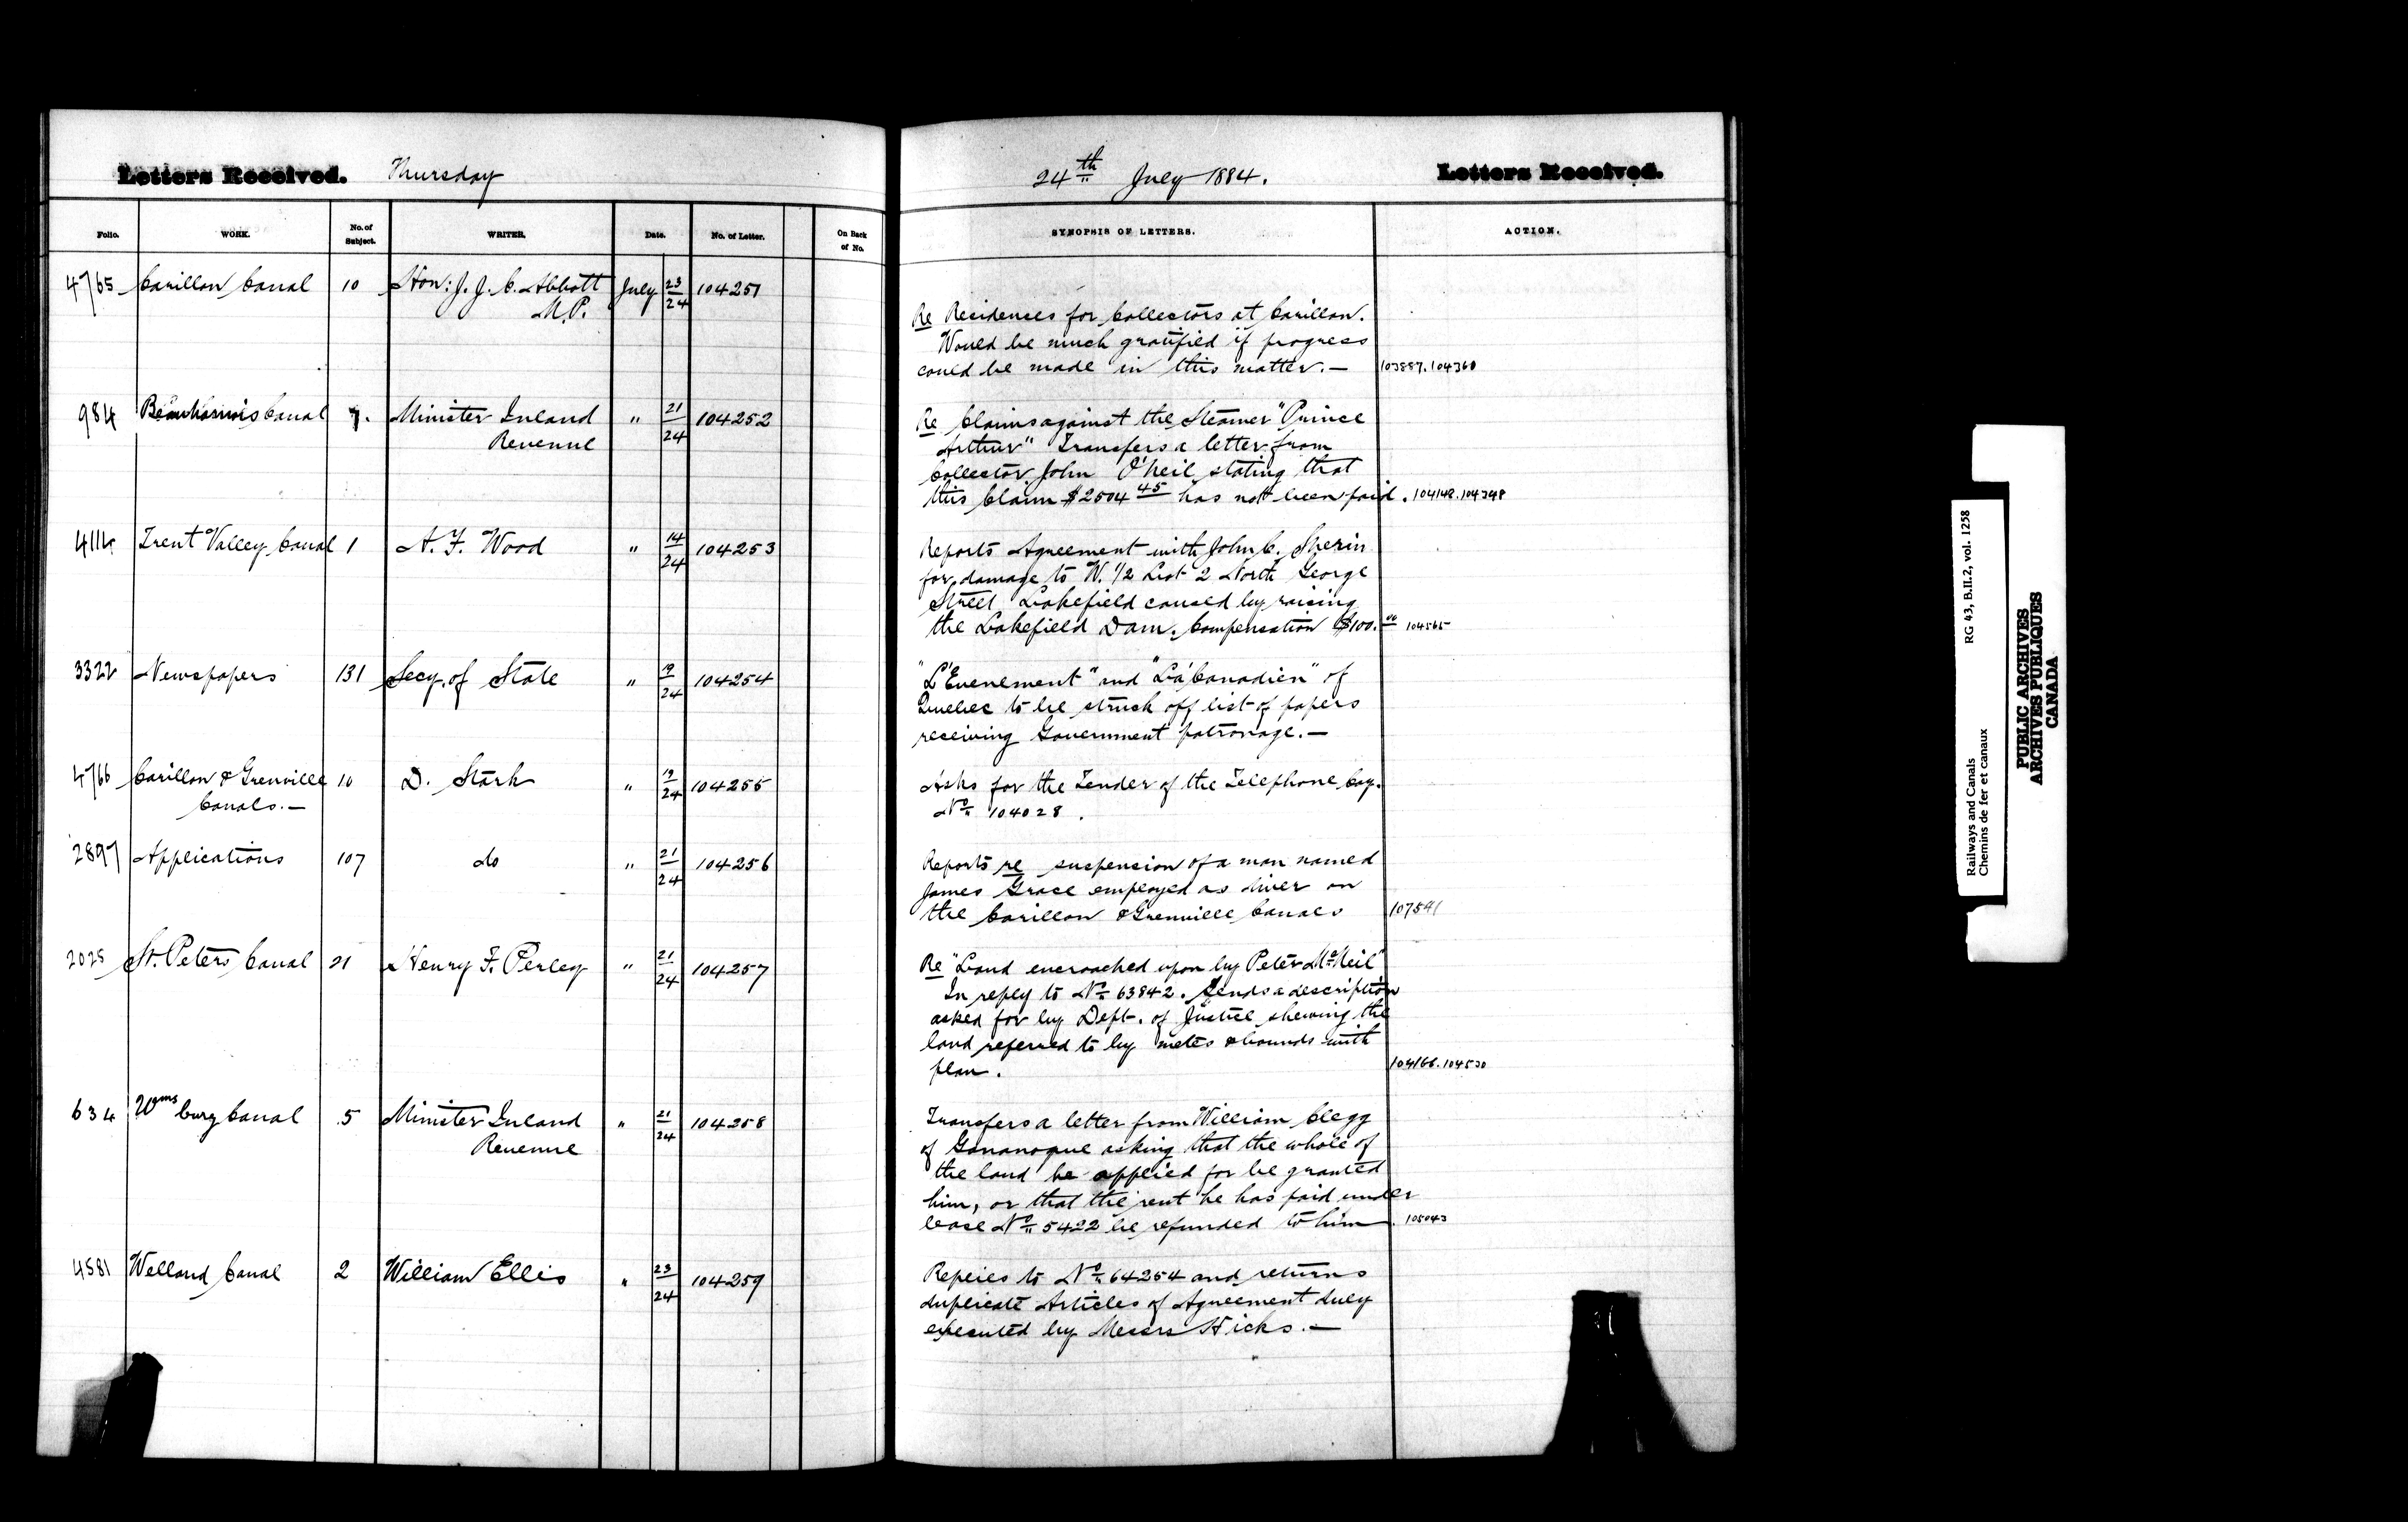 Letters Received. Thursday 24th July 1884. Letters Received.
Folio. WORK. No. of Subject. WRITER. Date. No. of Letter. On Back of No. SYNOPSIS OF LETTERS. ACTION.
4765 Carillon Canal 10 Hon: J. J. C. Abbott July 23/24 104251
M.P.
Re Residences for Collectors at Carillon.
Would be much gratified if progress
could be made in this matter.— 103887.104360
984 Beauharnois Canal 7. Minister Inland " 21/24 104252
Revenue
Re Claims against the Steamer "Prince
Arthur" Transfers a letter from
Collector John O'Neil stating that
this Claim $2504 45 has not been paid. 104148.104348
4114 Trent Valley Canal 1 A. F. Wood " 14/24 104253
Reports Agreement with John C. Sherin
for damage to W. 1/2 Lot 2 North George
Street Lakefield caused by raising
the Lakefield Dam. Compensation $100.00 104565
3322 Newspapers 131 Secy. of State " 19/24 104254
"L'Evenement" and "La Canadien" of
Quebec to be struck off list of papers
receiving Government patronage.—
4766 Carillon & Grenville 10 D. Stark " 19/24 104255
Canals.—
Asks for the Tender of the Telephone Coy.
No 104028.
2897 Applications 107 do " 21/24 104256
Reports re suspension of a man named
James Grace employed as diver on
the Carillon & Grenville Canals 107541
2025 St. Peters Canal 21 Henry F. Perley " 21/24 104257
Re "Land encroached upon by Peter McNeil"
In reply to No 63842. Sends a description
asked for by Dept. of Justice shewing the
land referred to by metes & bounds with
plan. 104166.104530
634 Wmsburg Canal 5 Minister Inland " 21/24 104258
Revenue
Transfers a letter from William Clegg
of Gananoque asking that the whole of
the land he applied for be granted
him, or that the rent he has paid under
lease No 5422 be refunded to him. 105043
4581 Welland Canal 2 William Ellis " 23/24 104259
Replies to No 64254 and returns
duplicate Articles of Agreement duly
executed by Messrs Hicks.—
Railways and Canals RG 43, B.II.2, vol. 1258
Chemins de fer et canaux
PUBLIC ARCHIVES
ARCHIVES PUBLIQUES
CANADA